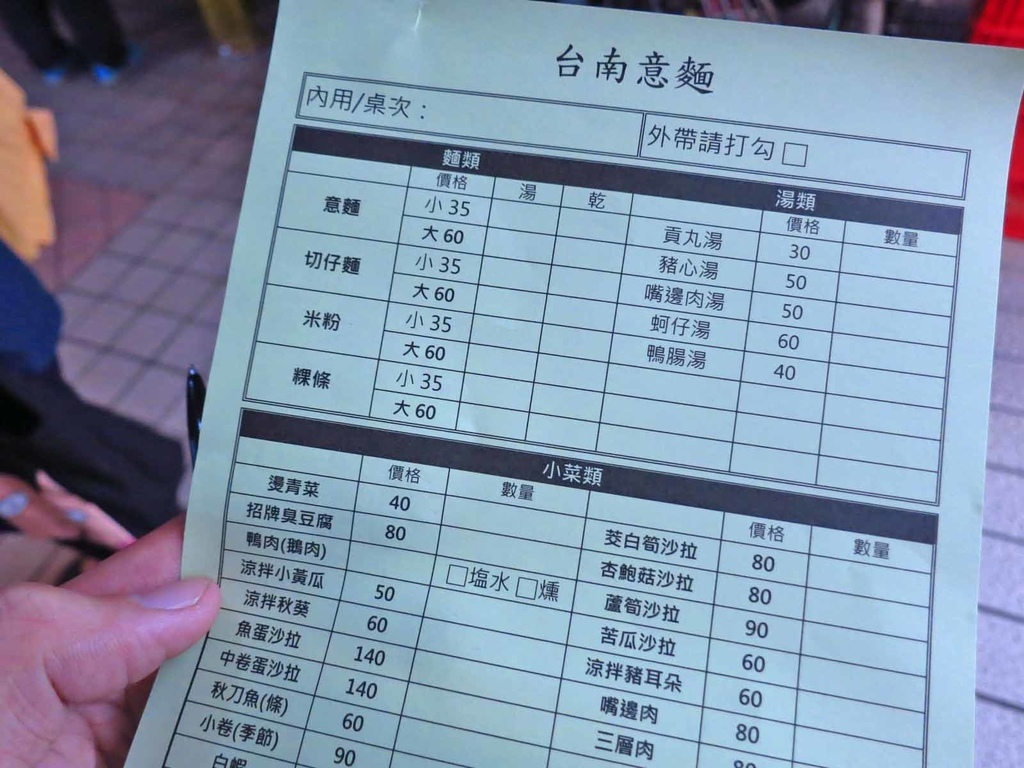 台南意麵
內用/桌次：
外帶請打勾 □
麵類 湯類
價格 湯 乾 價格 數量
意麵 小 35 貢丸湯 30
大 60 豬心湯 50
切仔麵 小 35 嘴邊肉湯 50
大 60 蚵仔湯 60
米粉 小 35 鴨腸湯 40
大 60
粿條 小 35
大 60
小菜類
價格 數量 價格 數量
燙青菜 40 茭白筍沙拉 80
招牌臭豆腐 80 杏鮑菇沙拉 80
鴨肉(鵝肉) □塩水 □燻 蘆筍沙拉 90
涼拌小黃瓜 50 苦瓜沙拉 60
涼拌秋葵 60 涼拌豬耳朵 60
魚蛋沙拉 140 嘴邊肉 80
中卷蛋沙拉 140 三層肉
秋刀魚(條) 60
小卷(季節) 90
白蝦